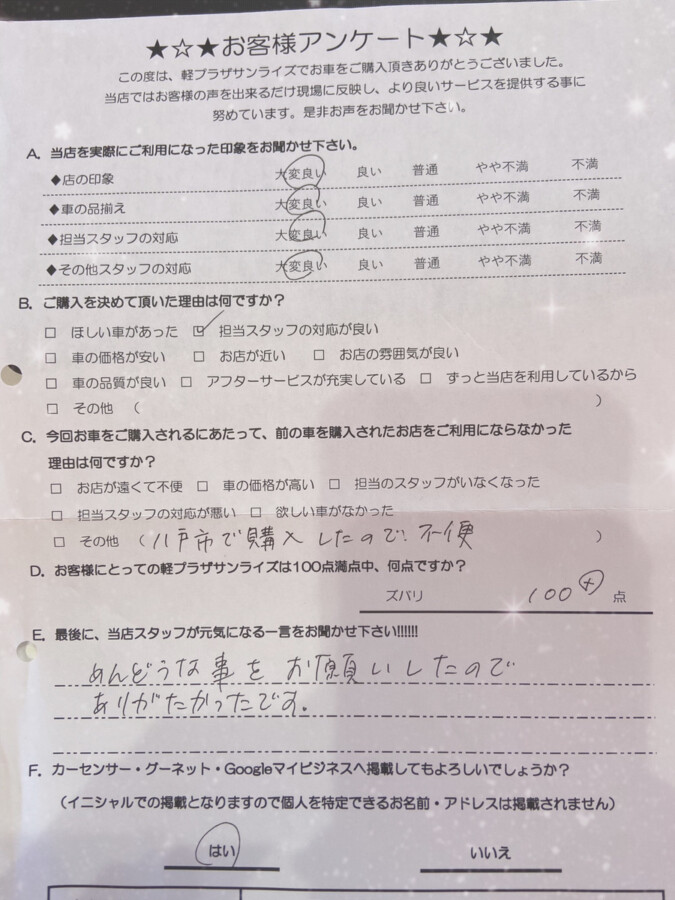 ★☆★お客様アンケート★☆★
この度は、軽プラザサンライズでお車をご購入頂きありがとうございました。
当店ではお客様の声を出来るだけ現場に反映し、より良いサービスを提供する事に
努めています。是非お声をお聞かせ下さい。
A．当店を実際にご利用になった印象をお聞かせ下さい。
◆店の印象 大変良い 良い 普通 やや不満 不満
◆車の品揃え 大変良い 良い 普通 やや不満 不満
◆担当スタッフの対応 大変良い 良い 普通 やや不満 不満
◆その他スタッフの対応 大変良い 良い 普通 やや不満 不満
B．ご購入を決めて頂いた理由は何ですか？
□ ほしい車があった ☑ 担当スタッフの対応が良い
□ 車の価格が安い □ お店が近い □ お店の雰囲気が良い
□ 車の品質が良い □ アフターサービスが充実している □ ずっと当店を利用しているから
□ その他 （ ）
C．今回お車をご購入されるにあたって、前の車を購入されたお店をご利用にならなかった
理由は何ですか？
□ お店が遠くて不便 □ 車の価格が高い □ 担当のスタッフがいなくなった
□ 担当スタッフの対応が悪い □ 欲しい車がなかった
□ その他 （八戸市で購入したので、不便 ）
D．お客様にとっての軽プラザサンライズは100点満点中、何点ですか？
ズバリ 100+ 点
E．最後に、当店スタッフが元気になる一言をお聞かせ下さい!!!!!!
めんどうな事をお願いしたので
ありがたかったです。
F．カーセンサー・グーネット・Googleマイビジネスへ掲載してもよろしいでしょうか？
（イニシャルでの掲載となりますので個人を特定できるお名前・アドレスは掲載されません）
はい いいえ